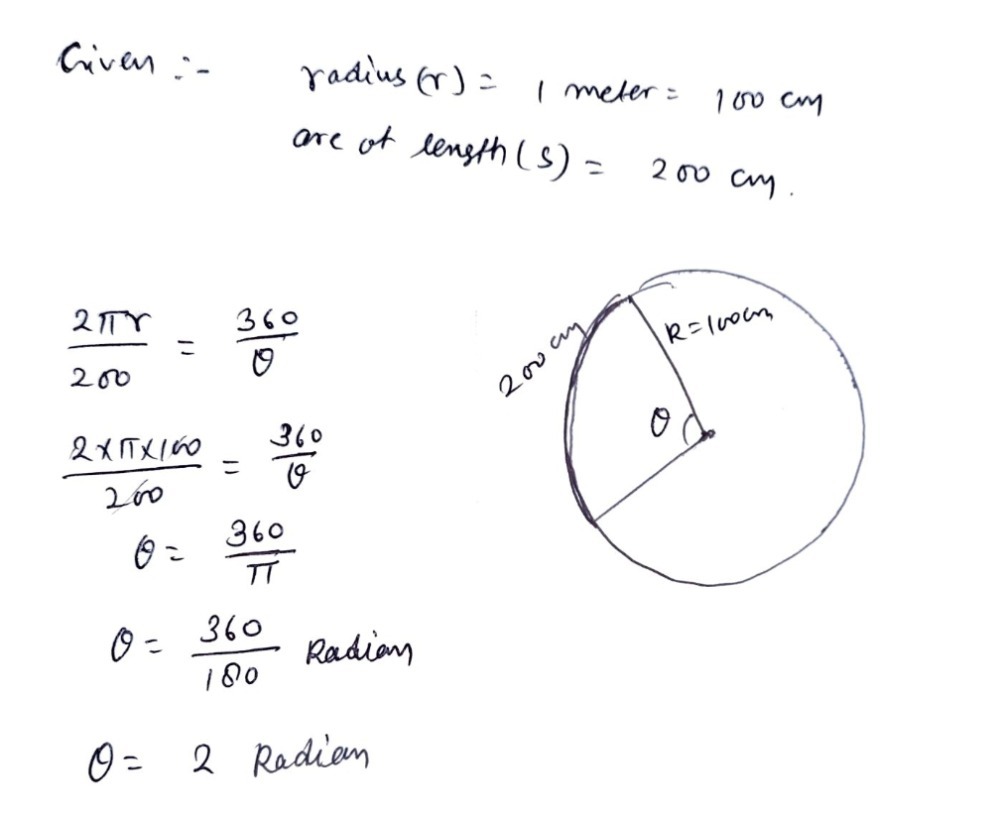 Given :-
radius (r) = 1 meter = 100 cm
arc of length (S) = 200 cm.
2πr/200 = 360/θ
2×π×100/200 = 360/θ
θ = 360/π
θ = 360/180 Radian
θ = 2 Radian
200 cm
R=100cm
θ